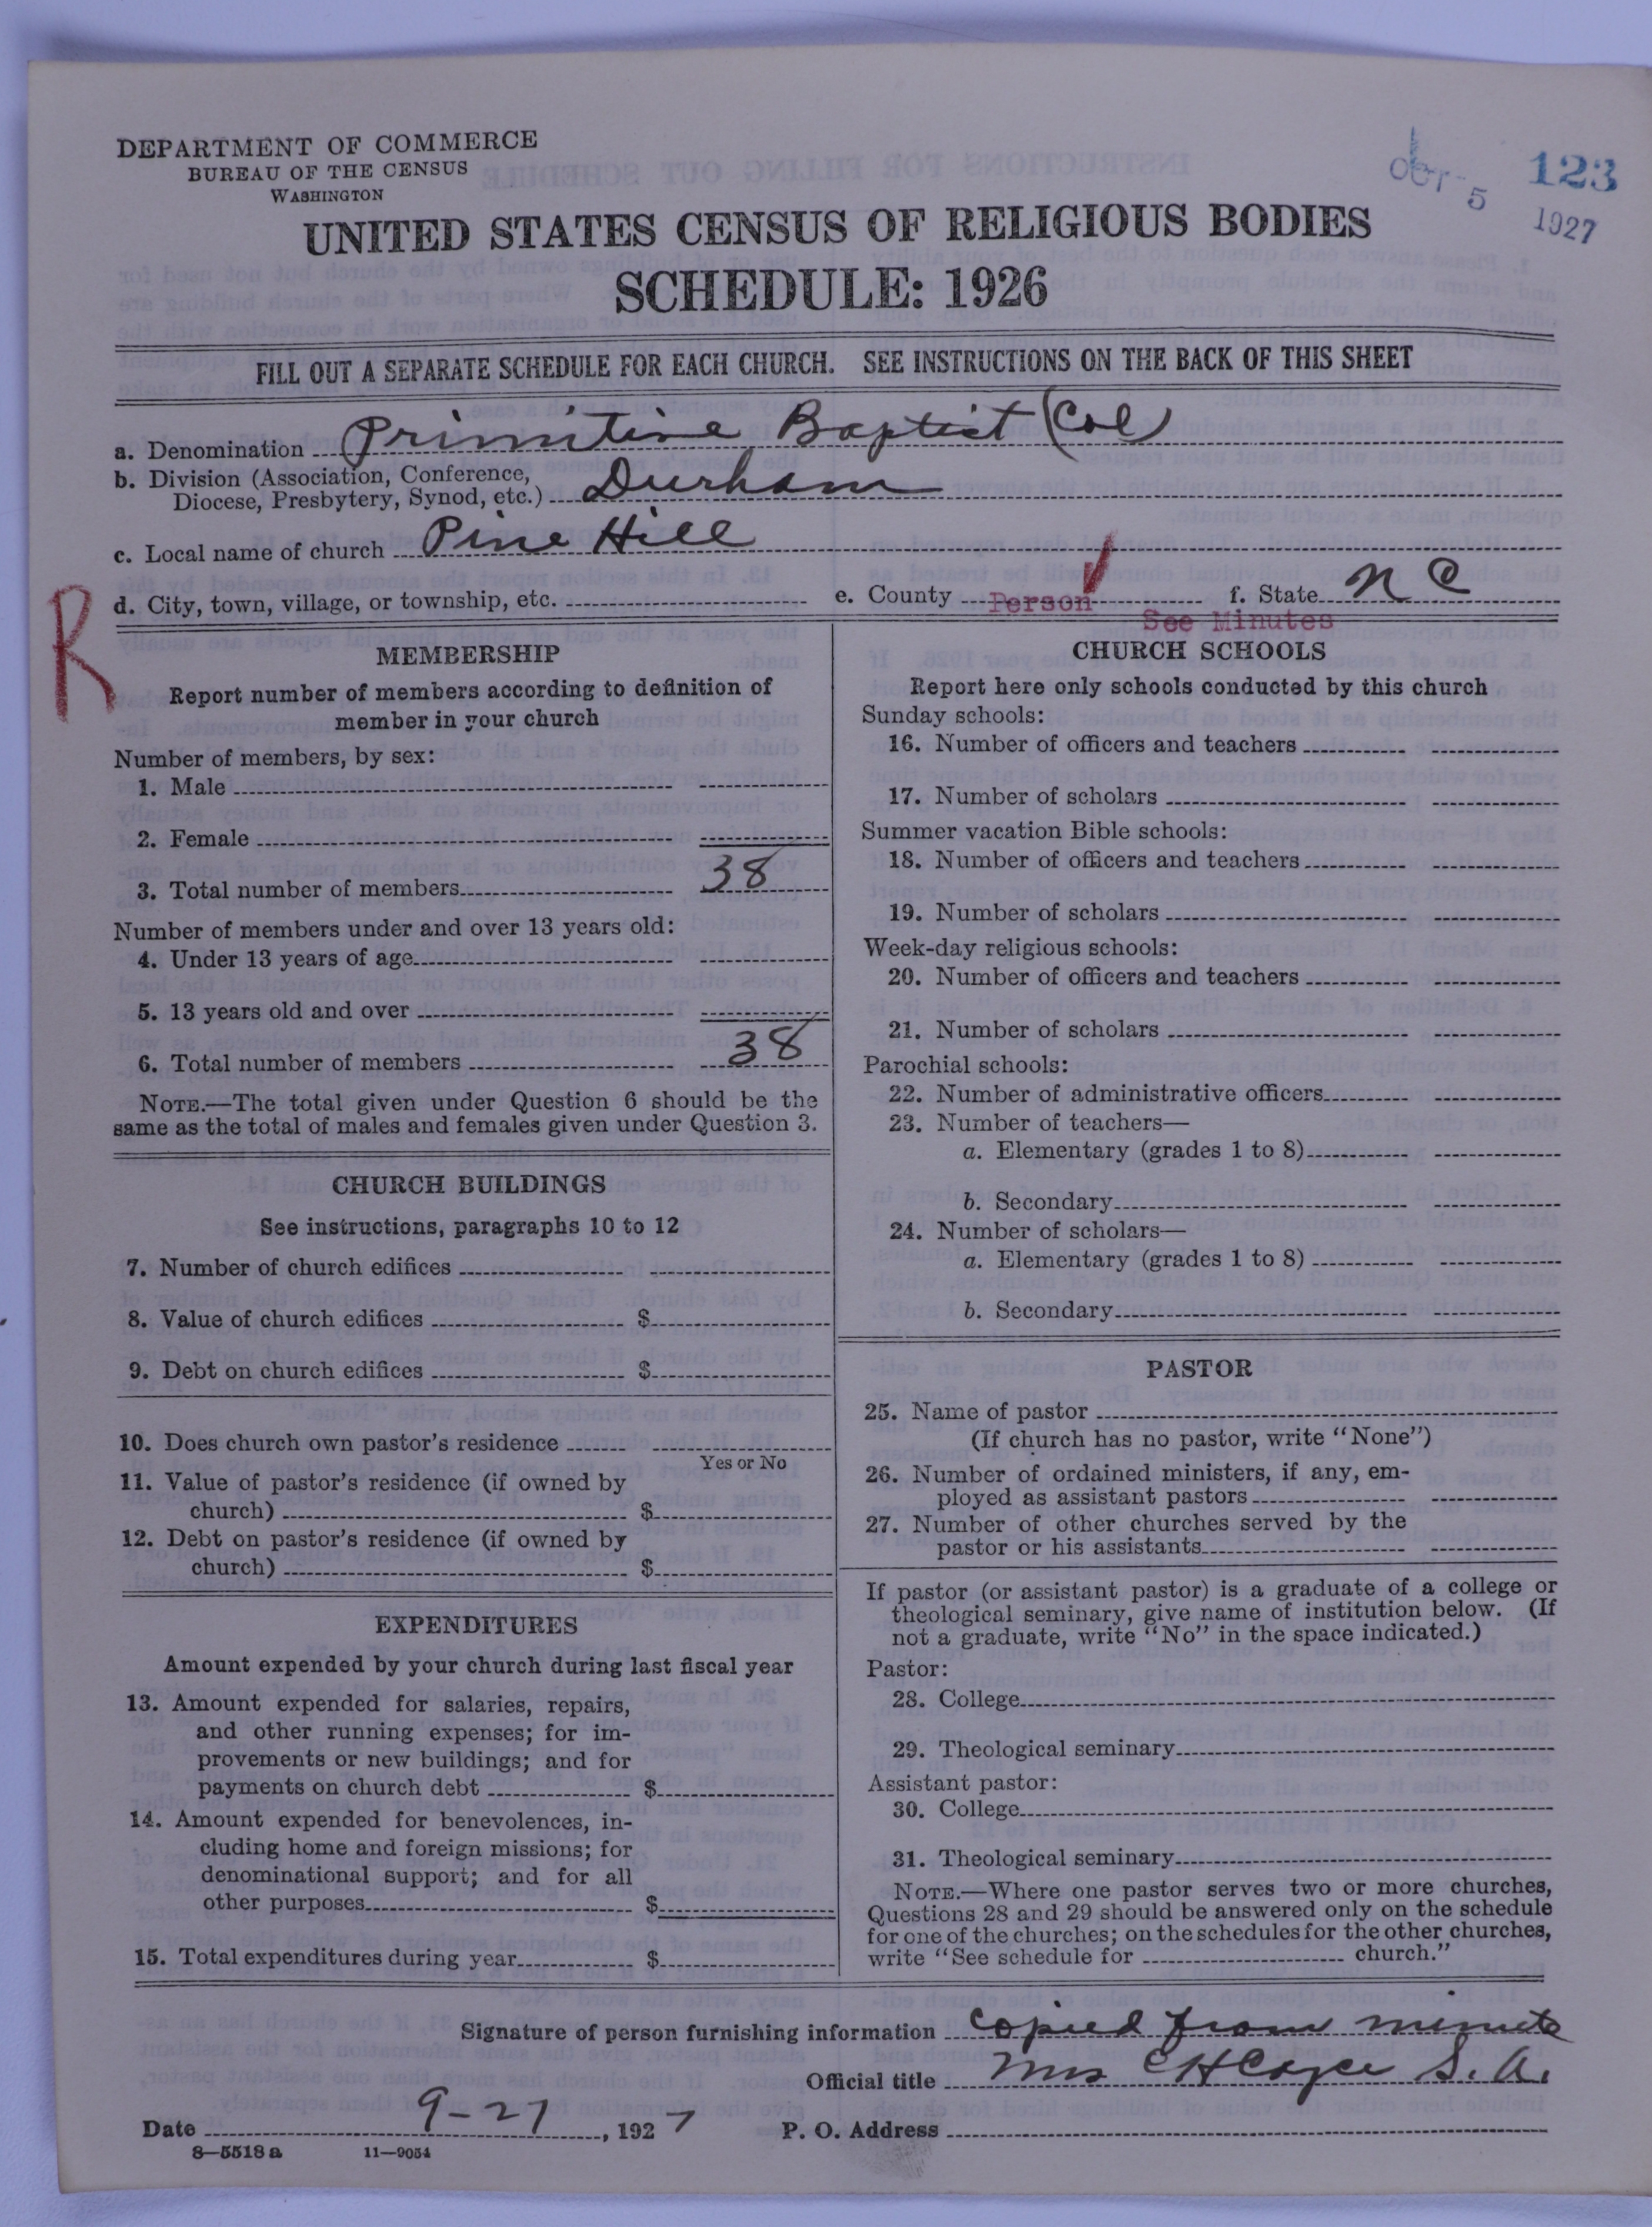 DEPARTMENT OF COMMERCE
BUREAU OF THE CENSUS
WASHINGTON
OCT 5 1927
123
UNITED STATES CENSUS OF RELIGIOUS BODIES
SCHEDULE: 1926
FILL OUT A SEPARATE SCHEDULE FOR EACH CHURCH. SEE INSTRUCTIONS ON THE BACK OF THIS SHEET
a. Denomination Primitive Baptist (Col)
b. Division (Association, Conference,
Diocese, Presbytery, Synod, etc.) Durham
c. Local name of church Pine Hill
R
d. City, town, village, or township, etc. e. County Person f. State N C
See Minutes
MEMBERSHIP
Report number of members according to definition of
member in your church
Number of members, by sex:
1. Male
2. Female
3. Total number of members 38
Number of members under and over 13 years old:
4. Under 13 years of age
5. 13 years old and over
6. Total number of members 38
NOTE.—The total given under Question 6 should be the
same as the total of males and females given under Question 3.
CHURCH BUILDINGS
See instructions, paragraphs 10 to 12
7. Number of church edifices
8. Value of church edifices $
9. Debt on church edifices $
10. Does church own pastor's residence
Yes or No
11. Value of pastor's residence (if owned by
church) $
12. Debt on pastor's residence (if owned by
church) $
EXPENDITURES
Amount expended by your church during last fiscal year
13. Amount expended for salaries, repairs,
and other running expenses; for im-
provements or new buildings; and for
payments on church debt $
14. Amount expended for benevolences, in-
cluding home and foreign missions; for
denominational support; and for all
other purposes $
15. Total expenditures during year $
CHURCH SCHOOLS
Report here only schools conducted by this church
Sunday schools:
16. Number of officers and teachers
17. Number of scholars
Summer vacation Bible schools:
18. Number of officers and teachers
19. Number of scholars
Week-day religious schools:
20. Number of officers and teachers
21. Number of scholars
Parochial schools:
22. Number of administrative officers
23. Number of teachers—
a. Elementary (grades 1 to 8)
b. Secondary
24. Number of scholars—
a. Elementary (grades 1 to 8)
b. Secondary
PASTOR
25. Name of pastor
(If church has no pastor, write "None")
26. Number of ordained ministers, if any, em-
ployed as assistant pastors
27. Number of other churches served by the
pastor or his assistants
If pastor (or assistant pastor) is a graduate of a college or
theological seminary, give name of institution below. (If
not a graduate, write "No" in the space indicated.)
Pastor:
28. College
29. Theological seminary
Assistant pastor:
30. College
31. Theological seminary
NOTE.—Where one pastor serves two or more churches,
Questions 28 and 29 should be answered only on the schedule
for one of the churches; on the schedules for the other churches,
write "See schedule for church."
Signature of person furnishing information copied from minute
Official title Mrs C H Cayce S. A.
Date 9-27, 1927 P. O. Address
8—5518 a 11—9054